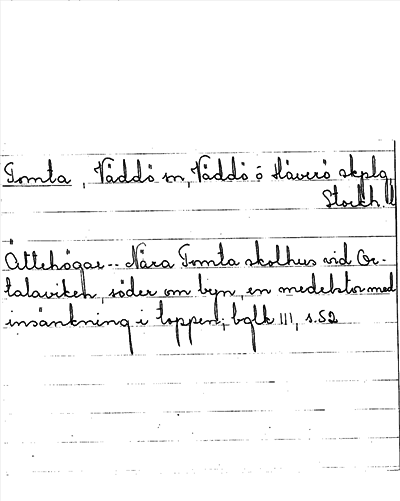 Tomta, Väddö sn, Väddö o Häverö skplg
Stockh. ll
Ättehögar.- Nära Tomta skolhus vid Or-
talaviken, söder om byn, en medelstor med
insänkning i toppen; bglk III, s.52